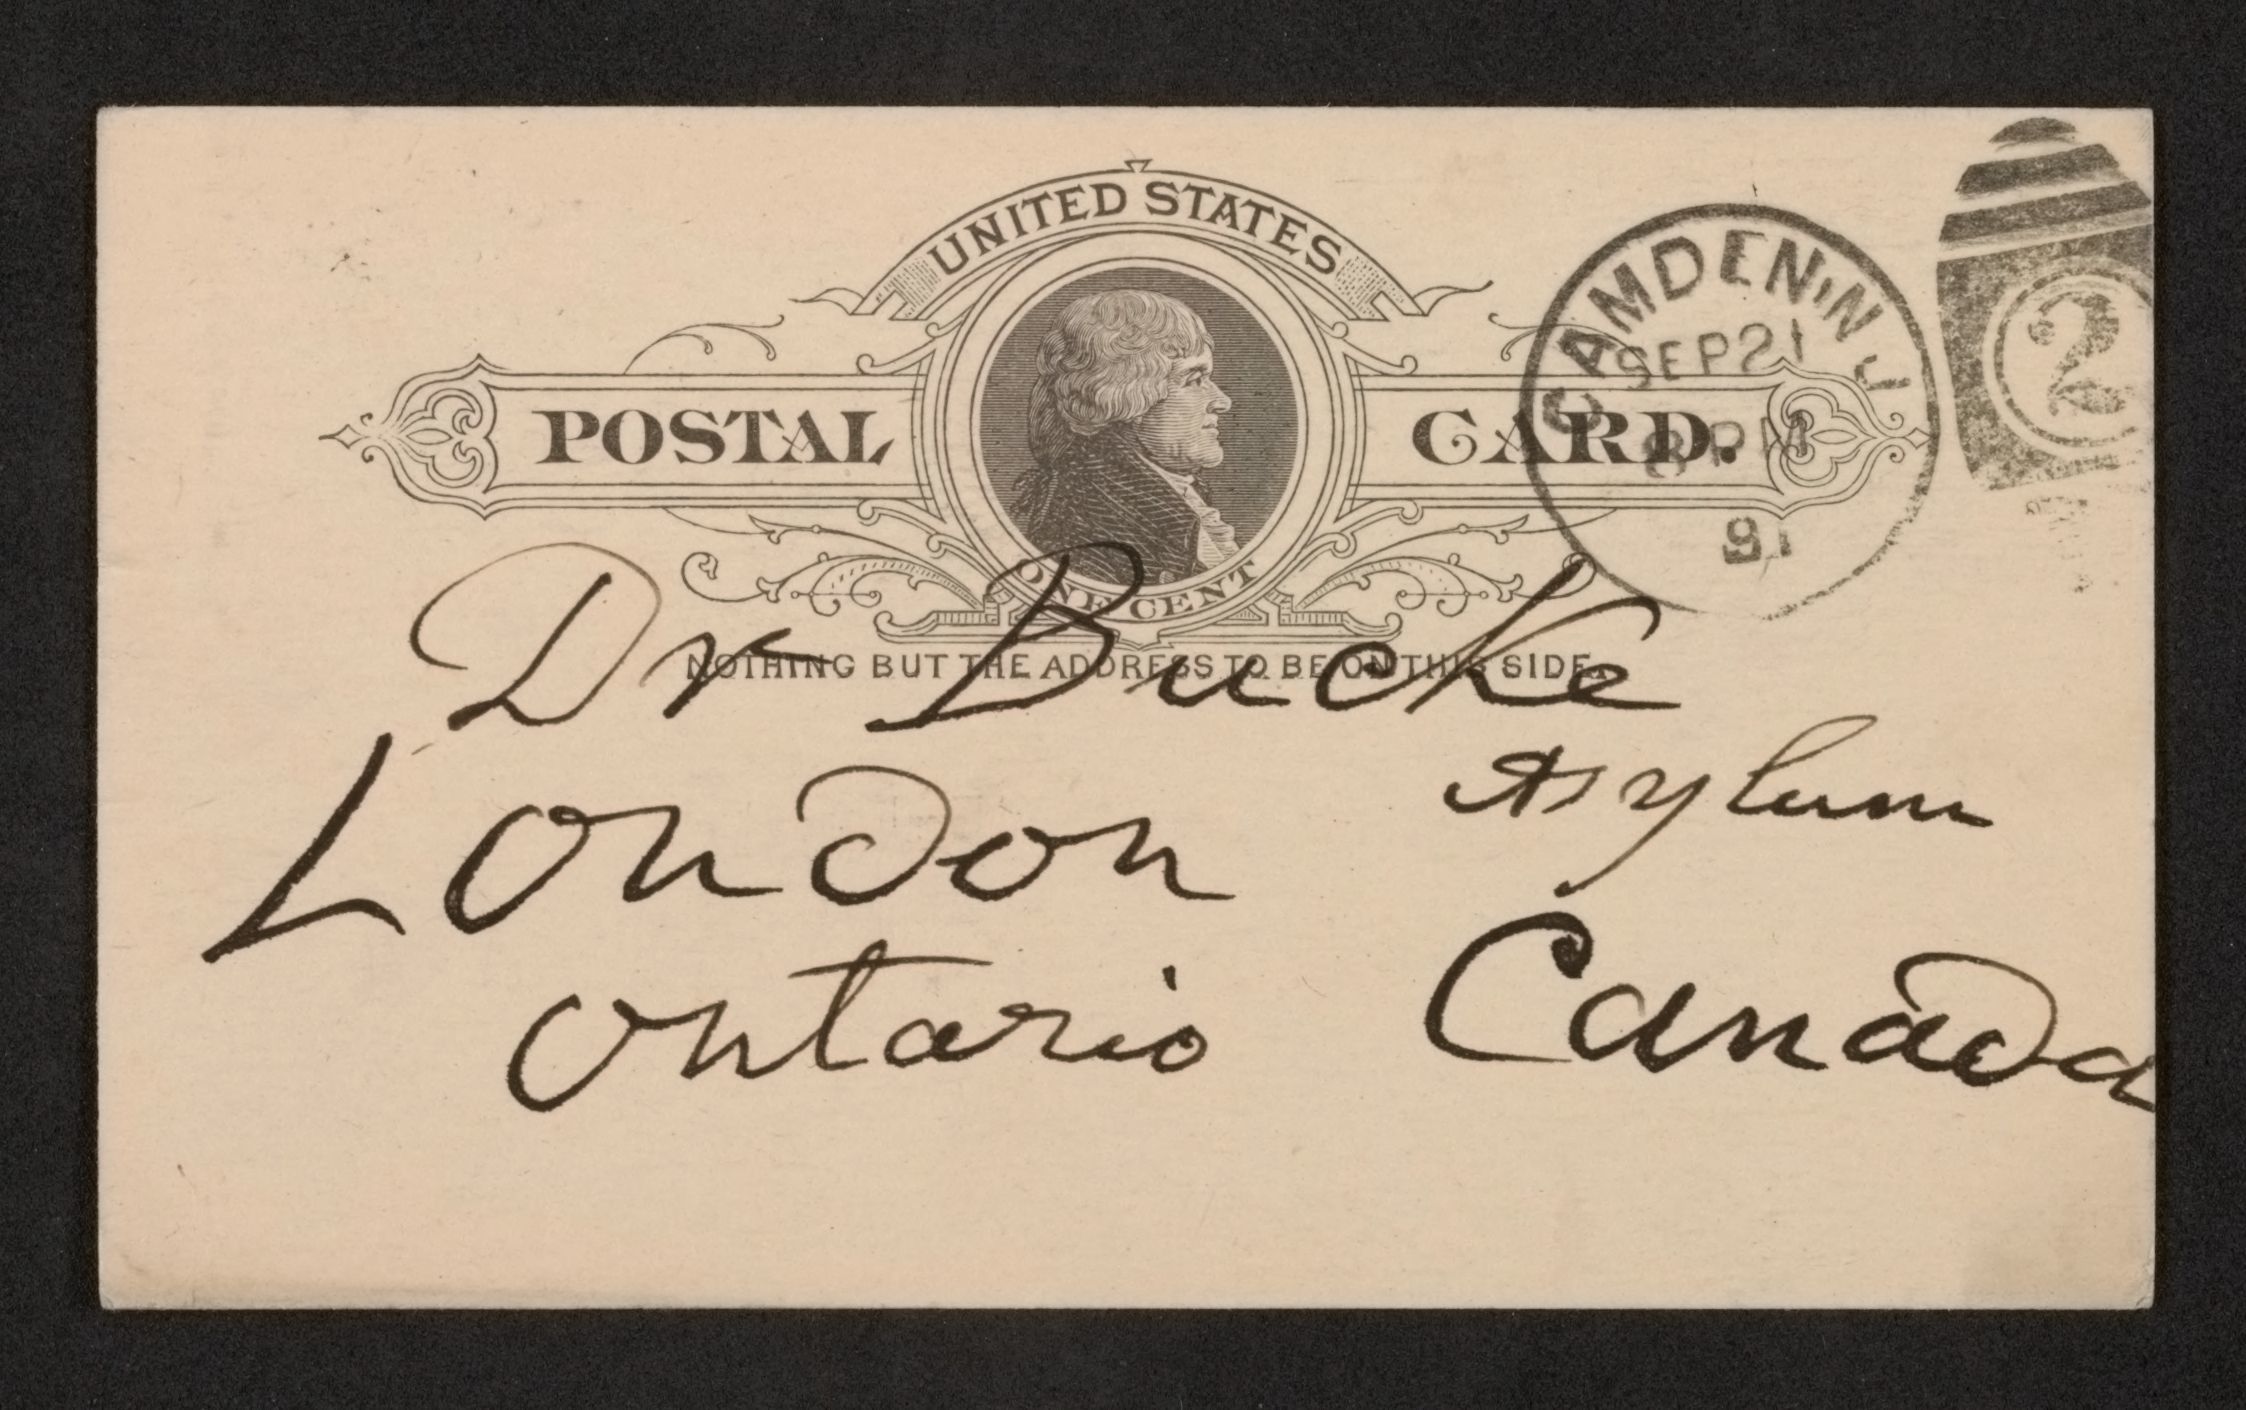 UNITED STATES
POSTAL CARD.
ONE CENT
NOTHING BUT THE ADDRESS TO BE ON THIS SIDE.
CAMDEN, N.J.
SEP 21
8 PM
91
2
Dr Bucke
Asylum
London
Ontario Canada